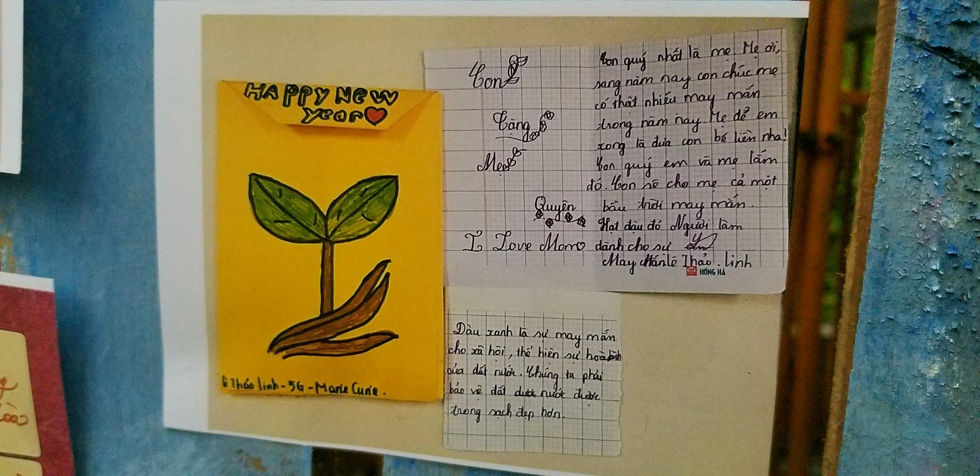 HAPPY NEW
year
Lê Thảo linh - 5G - Marie Curie.
Con
Tặng
Mẹ
Quyên
I Love Mom
Con quý nhất là mẹ. Mẹ ơi,
sang năm nay con chúc mẹ
có thật nhiều may mắn
trong năm nay Mẹ để em
xong là đưa con bế liền nha!
Con quý em và mẹ lắm
đó. Con sẽ cho mẹ cả một
bầu trời may mắn.
Hạt đậu đỏ Người làm
dành cho sự
May Mắn Lê Thảo. linh
HỒNG HÀ
Đậu xanh là sự may mắn
cho xã hội, thể hiện sự hoà bình
của đất nước. Chúng ta phải
bảo vệ đất nước được
trong sạch đẹp hơn.